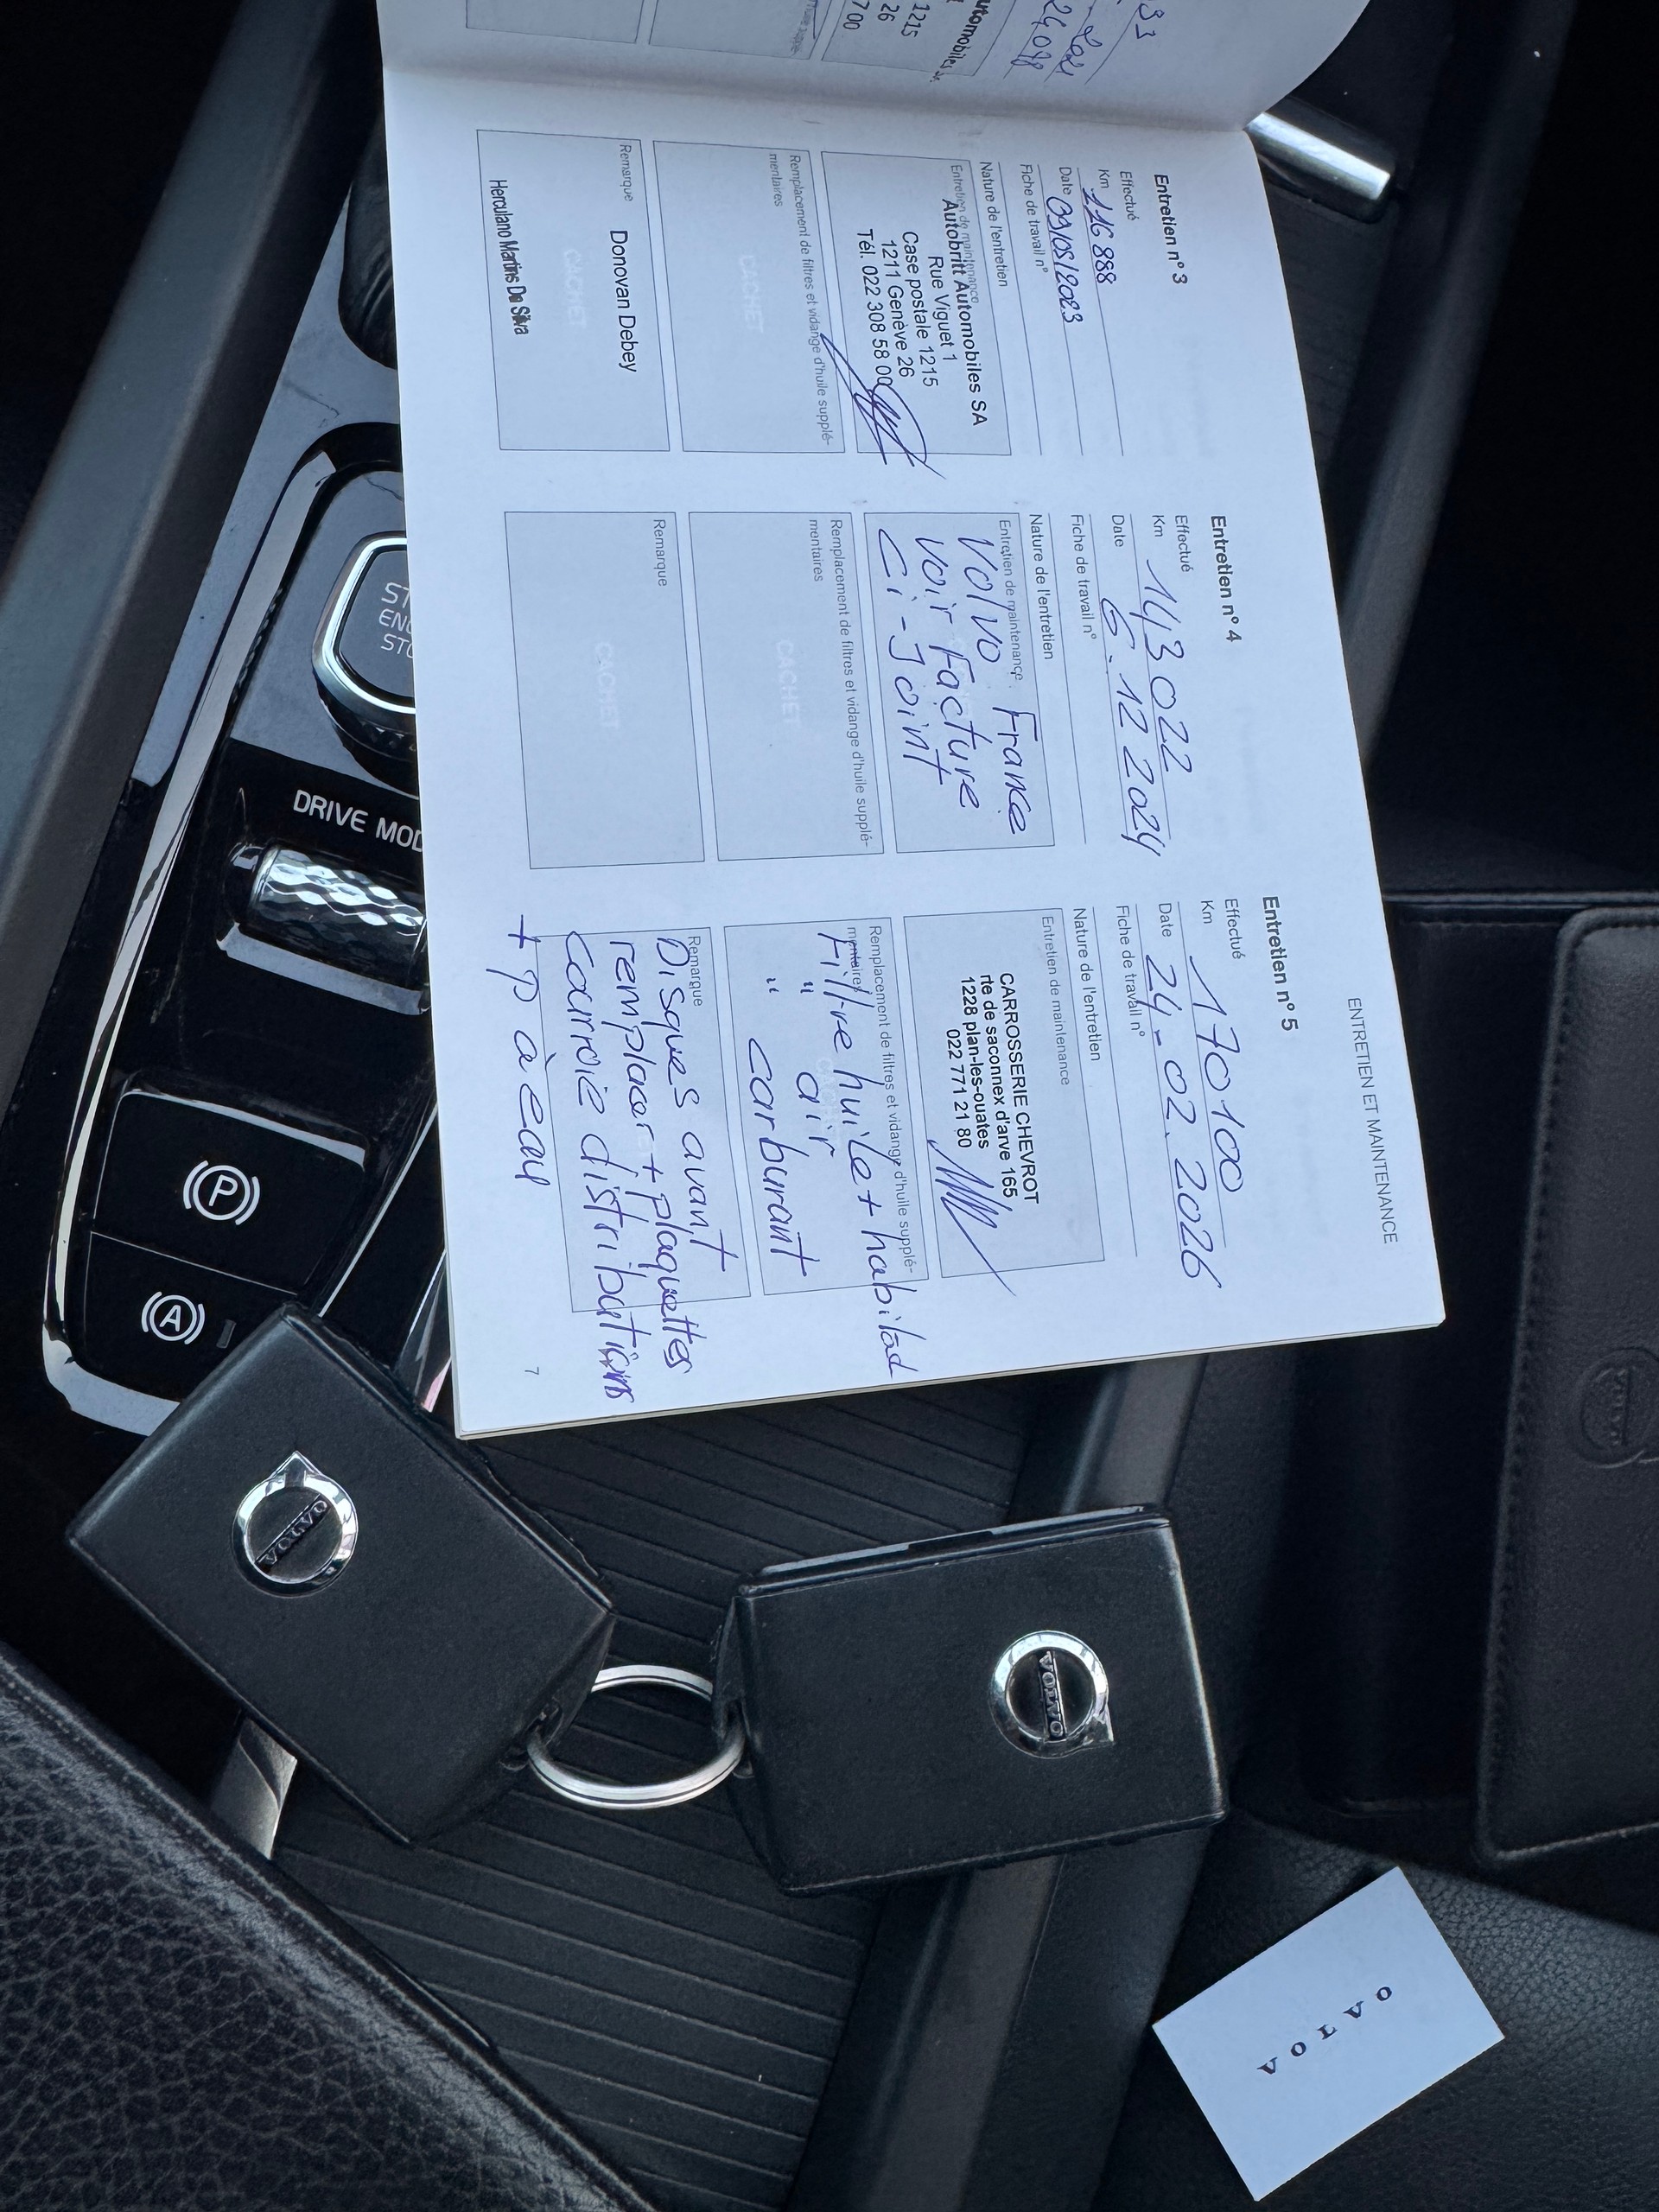 ENTRETIEN ET MAINTENANCE
Entretien n° 3
Effectué
Km 116 888
Date 09/05/2023
Fiche de travail n°
Nature de l'entretien
Entretien de maintenance
Autobritt Automobiles SA
Rue Viguet 1
Case postale 1215
1211 Genève 26
Tél. 022 308 58 00
Remplacement de filtres et vidange d'huile supplé-
mentaires
CACHET
Remarque
Donovan Debey
CACHET
Herculano Martins Da Silva
Entretien n° 4
Effectué
Km 143 022
Date 6.12 2024
Fiche de travail n°
Nature de l'entretien
Entretien de maintenance
Volvo France
voir Facture
Ci-Joint
Remplacement de filtres et vidange d'huile supplé-
mentaires
CACHET
Remarque
CACHET
Entretien n° 5
Effectué
Km 170 100
Date 24-02.2026
Fiche de travail n°
Nature de l'entretien
Entretien de maintenance
CARROSSERIE CHEVROT
rte de saconnex d'arve 165
1228 plan-les-ouates
022 771 21 80
Remplacement de filtres et vidange d'huile supplé-
mentaires
Filtre huile + habitad
" air
" carburant
Remarque
Disques avant
remplacer + plaquettes
Courroie distributions
+ P à eau
7
utomobiles
1215
26
700
24,088
93
DRIVE MOD
ST
ENG
STO
P
A
VOLVO
VOLVO
VOLVO
VOLVO